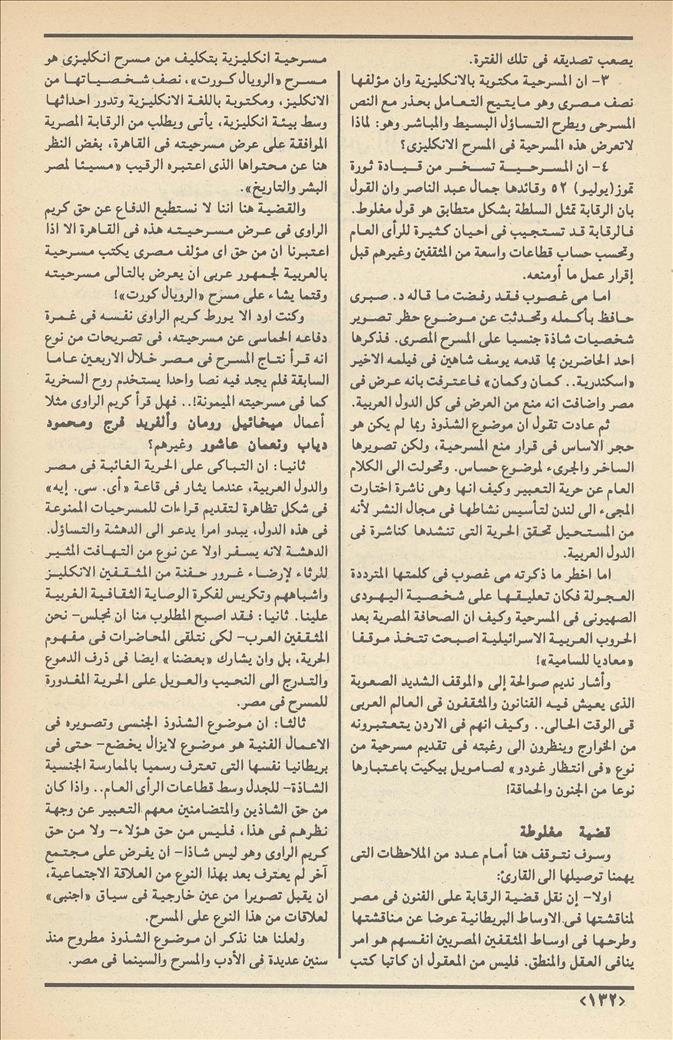 يصعب تصديقه فى تلك الفترة.
٣- ان المسرحية مكتوبة بالانكليزية وان مؤلفها
نصف مصرى وهو مايتيح التعامل بحذر مع النص
المسرحى ويطرح التساؤل البسيط والمباشر وهو: لماذا
لاتعرض هذه المسرحية فى المسرح الانكليزى؟
٤- ان المسرحية تسخر من قيادة ثورة
تموز(يوليو) ٥٢ وقائدها جمال عبد الناصر وان القول
بان الرقابة تمثل السلطة بشكل متطابق هو قول مغلوط.
فالرقابة قد تستجيب فى احيان كثيرة للرأى العام
وتحسب حساب قطاعات واسعة من المثقفين وغيرهم قبل
إقرار عمل ما أومنعه.
اما مى غصوب فقد رفضت ما قاله د. صبرى
حافظ بأكمله وتحدثت عن موضوع حظر تصوير
شخصيات شاذة جنسيا على المسرح المصرى. فذكرها
احد الحاضرين بما قدمه يوسف شاهين فى فيلمه الاخير
«اسكندرية.. كمان وكمان» فاعترفت بانه عرض فى
مصر واضافت انه منع من العرض فى كل الدول العربية.
ثم عادت تقول ان موضوع الشذوذ ربما لم يكن هو
حجر الاساس فى قرار منع المسرحية، ولكن تصويرها
الساخر والجرىء لموضوع حساس. وتحولت الى الكلام
العام عن حرية التعبير وكيف انها وهى ناشرة اختارت
المجىء الى لندن لتأسيس نشاطها فى مجال النشر لأنه
من المستحيل تحقق الحرية التى تنشدها كناشرة فى
الدول العربية.
اما اخطر ما ذكرته مى غصوب فى كلمتها المترددة
العجولة فكان تعليقها على شخصية اليهودى
الصهيونى فى المسرحية وكيف ان الصحافة المصرية بعد
الحروب العربية الاسرائيلية اصبحت تتخذ موقفا
«معاديا للسامية»!
وأشار نديم صوالحة إلى «الموقف الشديد الصعوبة
الذى يعيش فيه الفنانون والمثقفون فى العالم العربى
قى الوقت الحالى.. وكيف انهم فى الاردن يتعتبرونه
من الخوارج وينظرون الى رغبته فى تقديم مسرحية من
نوع «فى انتظار غودو» لصامويل بيكيت باعتبارها
نوعا من الجنون والحماقة!
قضية مغلوطة
وسوف نتوقف هنا أمام عدد من الملاحظات التى
يهمنا توصيلها الى القارئ:
اولا- إن نقل قضية الرقابة على الفنون فى مصر
لمناقشتها فى الاوساط البريطانية عوضا عن مناقشتها
وطرحها فى اوساط المثقفين المصريين انفسهم هو امر
ينافى العقل والمنطق. فليس من المعقول ان كاتبا كتب
مسرحية انكليزية بتكليف من مسرح انكليزى هو
مسرح «الرويال كورت»، نصف شخصياتها من
الانكليز، ومكتوبة باللغة الانكليزية وتدور احداثها
وسط بيئة انكليزية، يأتى ويطلب من الرقابة المصرية
الموافقة على عرض مسرحيته فى القاهرة، بغض النظر
هنا عن محتواها الذى اعتبره الرقيب «مسيئا لمصر
البشر والتاريخ».
والقضية هنا اننا لا نستطيع الدفاع عن حق كريم
الراوى فى عرض مسرحيته هذه فى القاهرة الا اذا
اعتبرنا ان من حق اى مؤلف مصرى يكتب مسرحية
بالعربية لجمهور عربى ان يعرض بالتالى مسرحيته
وقتما يشاء على مسرح «الرويال كورت»!
وكنت اود الا يورط كريم الراوى نفسه فى غمرة
دفاعه الحماسى عن مسرحيته، فى تصريحات من نوع
انه قرأ نتاج المسرح فى مصر خلال الاربعين عاما
السابقة فلم يجد فيه نصا واحدا يستخدم روح السخرية
كما فى مسرحيته الميمونة!.. فهل قرأ كريم الراوى مثلا
أعمال ميخائيل رومان وألفريد فرج ومحمود
دياب ونعمان عاشور وغيرهم؟
ثانيا: ان التباكى على الحرية الغائبة فى مصر
والدول العربية، عندما يثار فى قاعة «أى. سى. إيه»
فى شكل تظاهرة لتقديم قراءات للمسرحيات الممنوعة
فى هذه الدول، يبدو امرا يدعو الى الدهشة والتساؤل.
الدهشة لانه يسفر اولا عن نوع من التهافت المثير
للرثاء لإرضاء غرور حفنة من المثقفين الانكليز
واشباههم وتكريس لفكرة الوصاية الثقافية الغربية
علينا. ثانيا: فقد اصبح المطلوب منا ان نجلس- نحن
المثقفين العرب- لكى نتلقى المحاضرات فى مفهوم
الحرية، بل وان يشارك «بعضنا» ايضا فى ذرف الدموع
والتدرج الى النحيب والعويل على الحرية المغدورة
للمسرح فى مصر.
ثالثا: ان موضوع الشذوذ الجنسى وتصويره فى
الاعمال الفنية هو موضوع لايزال يخضع- حتى فى
بريطانيا نفسها التى تعترف رسميا بالممارسة الجنسية
الشاذة- للجدل وسط قطاعات الرأى العام.. واذا كان
من حق الشاذين والمتضامنين معهم التعبير عن وجهة
نظرهم فى هذا، فليس من حق هؤلاء- ولا من حق
كريم الراوى وهو ليس شاذا- ان يفرض على مجتمع
آخر لم يعترف بعد بهذا النوع من العلاقة الاجتماعية،
ان يقبل تصويرا من عين خارجية فى سياق «اجنبى»
لعلاقات من هذا النوع على المسرح.
ولعلنا هنا نذكر ان موضوع الشذوذ مطروح منذ
سنين عديدة فى الأدب والمسرح والسينما فى مصر.
<١٣٢>